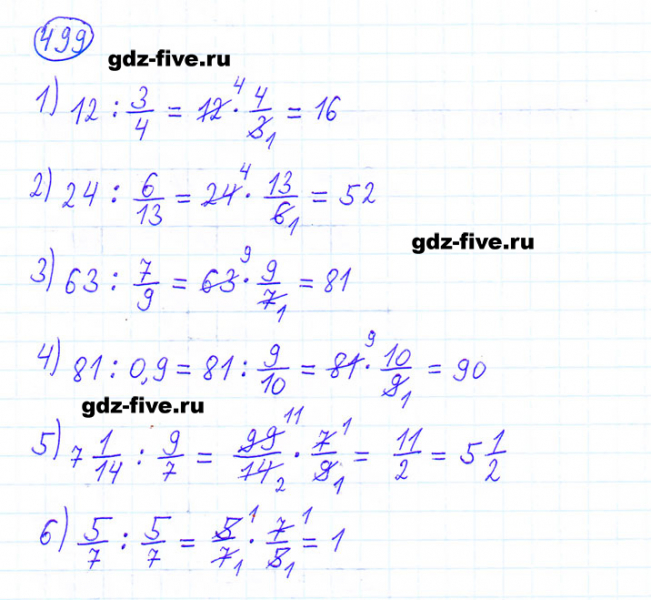 499
gdz-five.ru
1) 12 : 3/4 = 12 4 · 4/3 1 = 16
2) 24 : 6/13 = 24 4 · 13/6 1 = 52
gdz-five.ru
3) 63 : 7/9 = 63 9 · 9/7 1 = 81
4) 81 : 0,9 = 81 : 9/10 = 81 9 · 10/9 1 = 90
gdz-five.ru
5) 7 1/14 : 9/7 = 99 11/14 2 · 7 1/9 1 = 11/2 = 5 1/2
6) 5/7 : 5/7 = 5 1/7 1 · 7 1/5 1 = 1